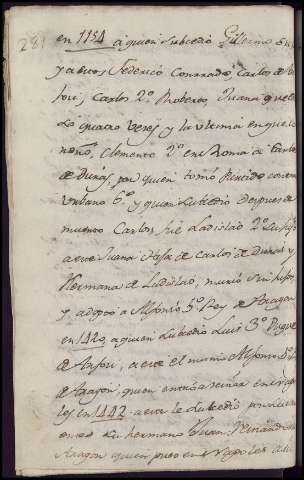 281
en 1154 a quien subcedió Gillermo su
y a este Federico Conrrado, Carlos de An
jou, Carlos 2º Roberto, Juana que
quatro veces y la ultima en que
Clemente 7º en Roma a Carlos
de Durás, por quien tomó Partido contra
Urbano 6º y quien subcedió despues de
muerto Carlos fué Ladislao 2º su hijo
a este Juana hija de Carlos de Durás y
Hermana de Ladislao, murió sin hijos
y adoptó a Alfonso 5º Rey de Aragon
en 1420, a quien subcedio Luis 3º Duque
de Anjou, a este el mismo Alfonso 5º de
Aragon, quien entró a reinar en
les en 1442 a este le subcedio por
su hermano Juan,
Aragon quien puso en Napoles